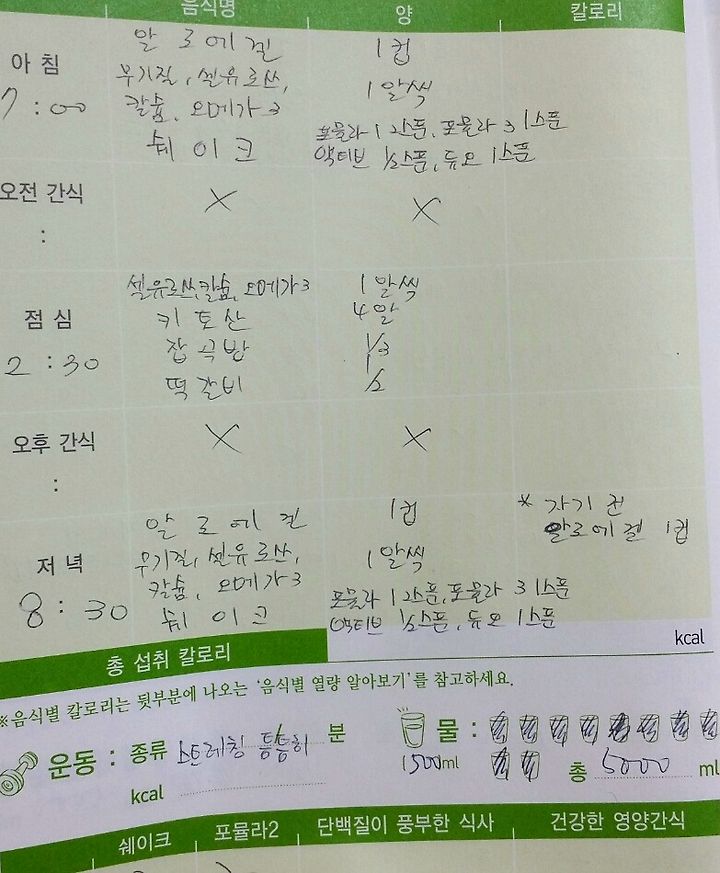 음식명 양 칼로리
아침 알로에겔 1컵
7:00 무기질, 셀유로쓰, 1알씩
칼슘, 오메가3
쉐이크 포뮬라1 2스푼, 포뮬라3 1스푼
액티브 1/2스푼, 듀오 1스푼
오전 간식 X X
:
셀유로쓰, 칼슘, 오메가3 1알씩
점심 키토산 4알
2:30 잡곡밥 1/3
떡갈비 1/2
오후 간식 X X
:
알로에겔 1컵 * 자기 전
알로에겔 1컵
저녁 무기질, 셀유로쓰, 1알씩
칼슘, 오메가3
8:30 쉐이크 포뮬라1 2스푼, 포뮬라3 1스푼
액티브 1/2스푼, 듀오 1스푼
총 섭취 칼로리 kcal
※음식별 칼로리는 뒷부분에 나오는 '음식별 열량 알아보기'를 참고하세요.
운동 : 종류 스트레칭 틈틈히 분 물 :
kcal 1500ml 총 5000 ml
쉐이크 포뮬라2 단백질이 풍부한 식사 건강한 영양간식